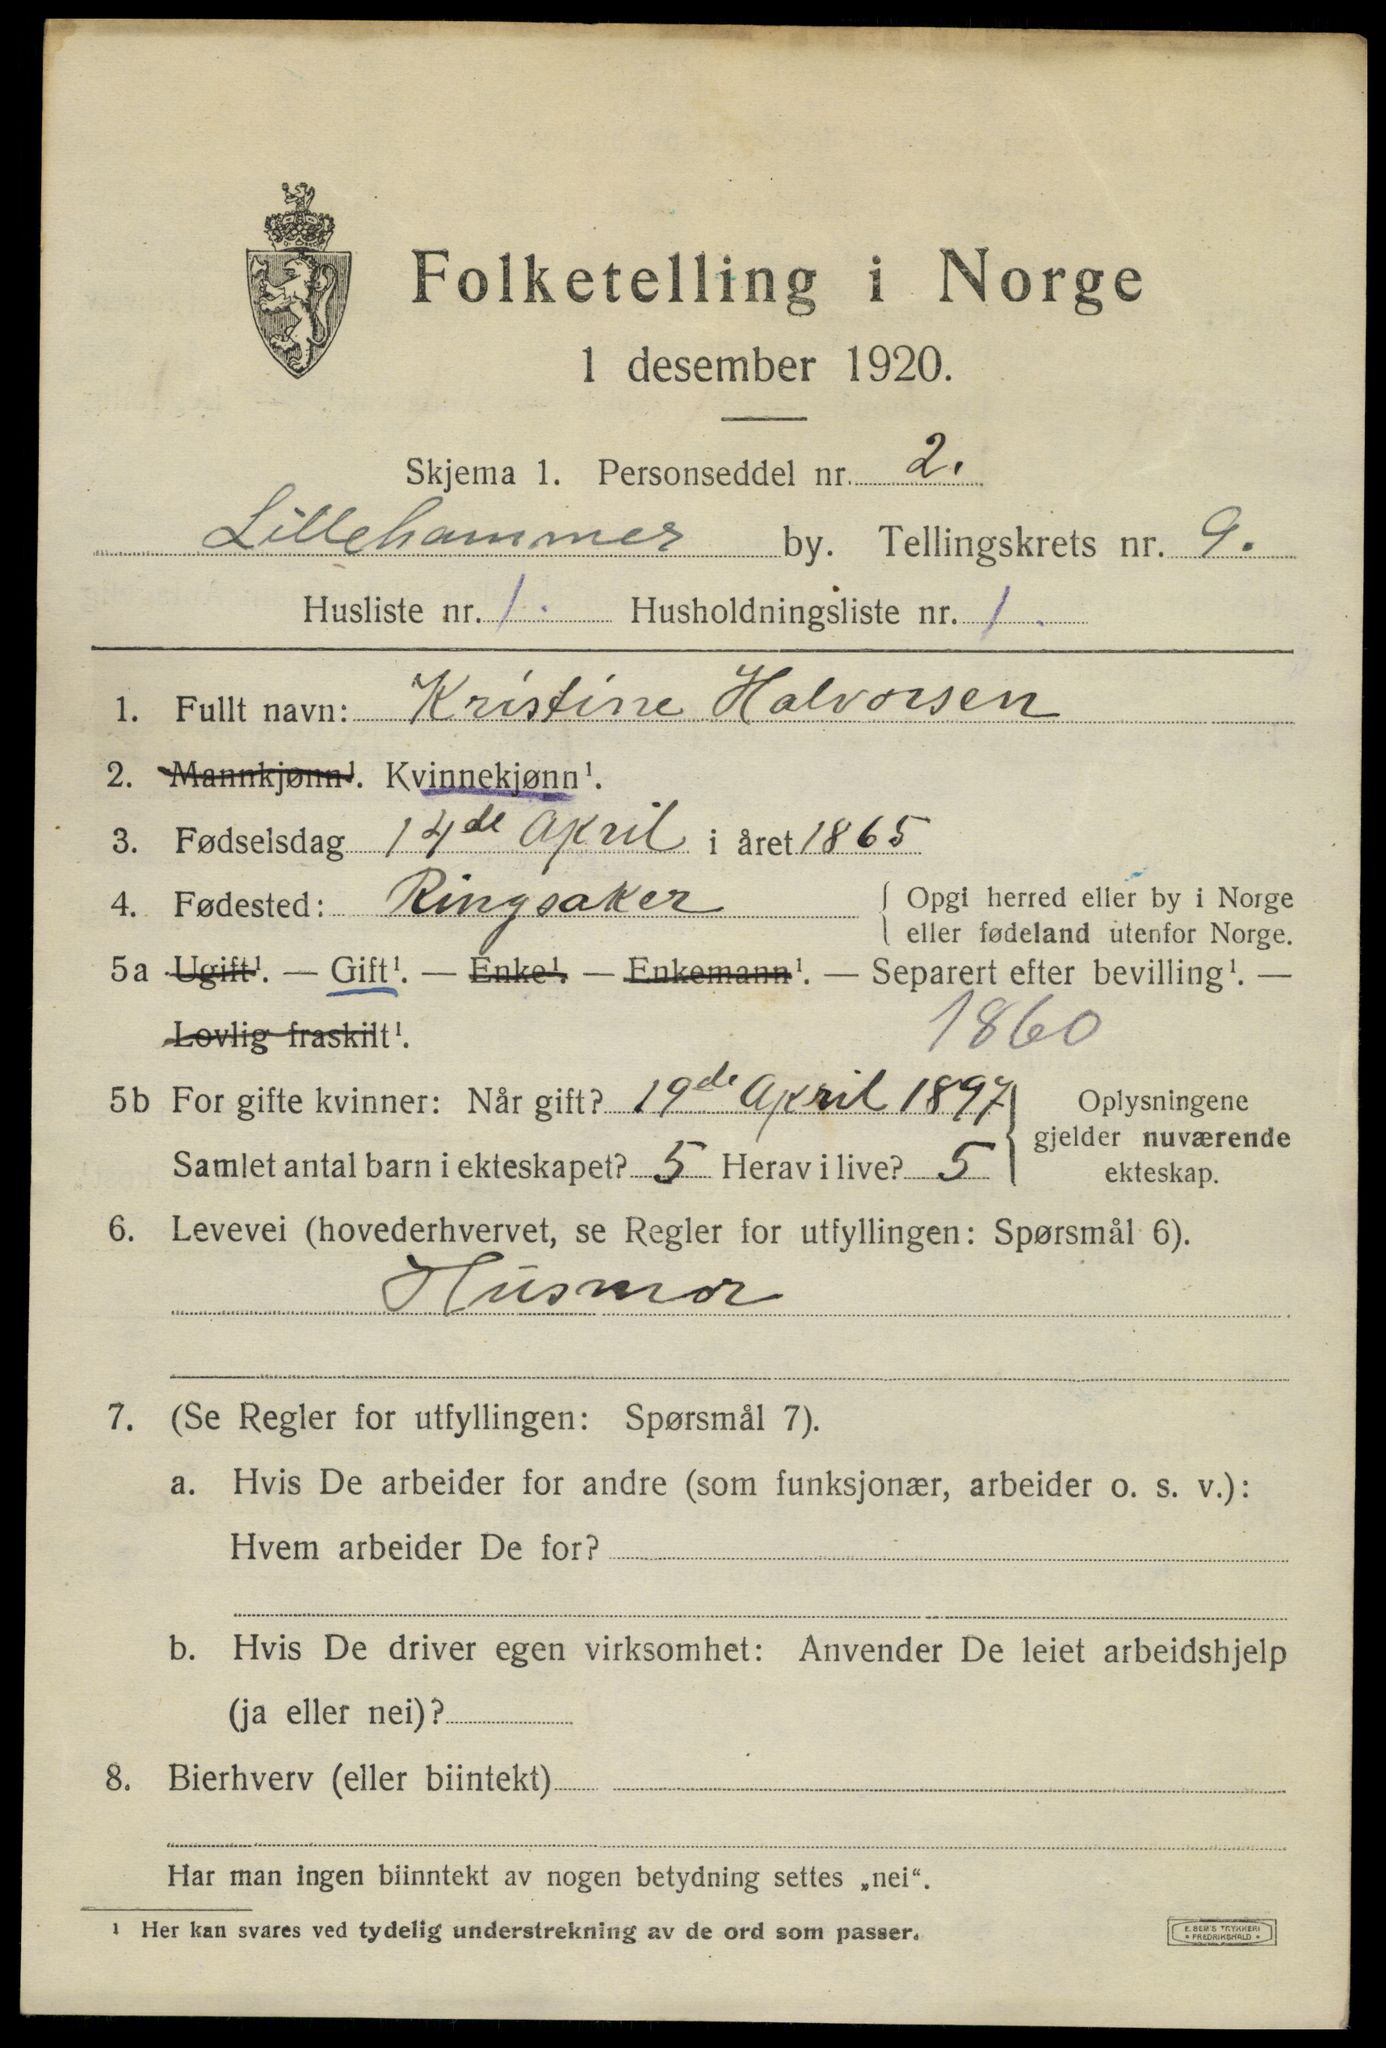 Folketelling i Norge
1 desember 1920.
Skjema 1. Personseddel nr. 2.
Lillehammer by. Tellingskrets nr. 9.
Husliste nr. 1. Husholdningsliste nr. 1.
1. Fullt navn: Kristine Halvorsen
2. Mannkjønn¹. Kvinnekjønn¹.
3. Fødselsdag 14de April i året 1865
4. Fødested: Ringsaker { Opgi herred eller by i Norge
eller fødeland utenfor Norge.
5a Ugift¹. — Gift¹. — Enke¹. — Enkemann¹. — Separert efter bevilling¹. —
Lovlig fraskilt¹. 1860
5b For gifte kvinner: Når gift? 19de April 1897 } Oplysningene
gjelder nuværende
Samlet antal barn i ekteskapet? 5 Herav i live? 5 ekteskap.
6. Levevei (hovederhvervet, se Regler for utfyllingen: Spørsmål 6).
Husmor
7. (Se Regler for utfyllingen: Spørsmål 7).
a. Hvis De arbeider for andre (som funksjonær, arbeider o. s. v.):
Hvem arbeider De for?
b. Hvis De driver egen virksomhet: Anvender De leiet arbeidshjelp
(ja eller nei)?
8. Bierhverv (eller biintekt)
Har man ingen biinntekt av nogen betydning settes „nei“.
¹ Her kan svares ved tydelig understrekning av de ord som passer.
E. SEM'S TRYKKERI
• FREDRIKSHALD •